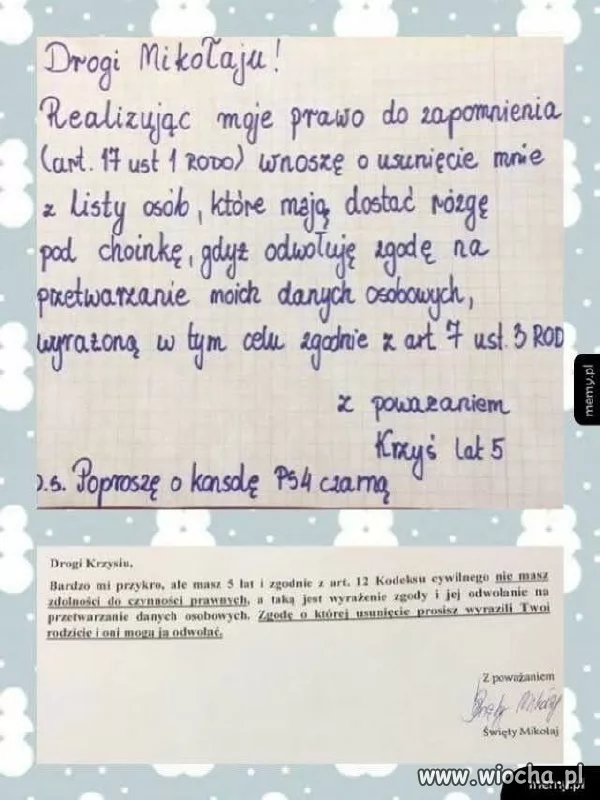 Drogi Mikołaju!
Realizując moje prawo do zapomnienia
(art. 17 ust 1 RODO) wnoszę o usunięcie mnie
z listy osób, które mają dostać rózgę
pod choinkę, gdyż odwołuję zgodę na
przetwarzanie moich danych osobowych,
wyrażoną w tym celu zgodnie z art 7 ust. 3 ROD
z poważaniem
Krzyś lat 5
p.s. Poproszę o konsolę PS4 czarną
memy.pl
Drogi Krzysiu,
Bardzo mi przykro, ale masz 5 lat i zgodnie z art. 12 Kodeksu cywilnego nie masz
zdolności do czynności prawnych, a taką jest wyrażenie zgody i jej odwołanie na
przetwarzanie danych osobowych. Zgodę o której usunięcie prosisz wyrazili Twoi
rodzice i oni mogą ją odwołać.
Z poważaniem
Święty Mikołaj
Święty Mikołaj
www.wiocha.pl
memy.pl